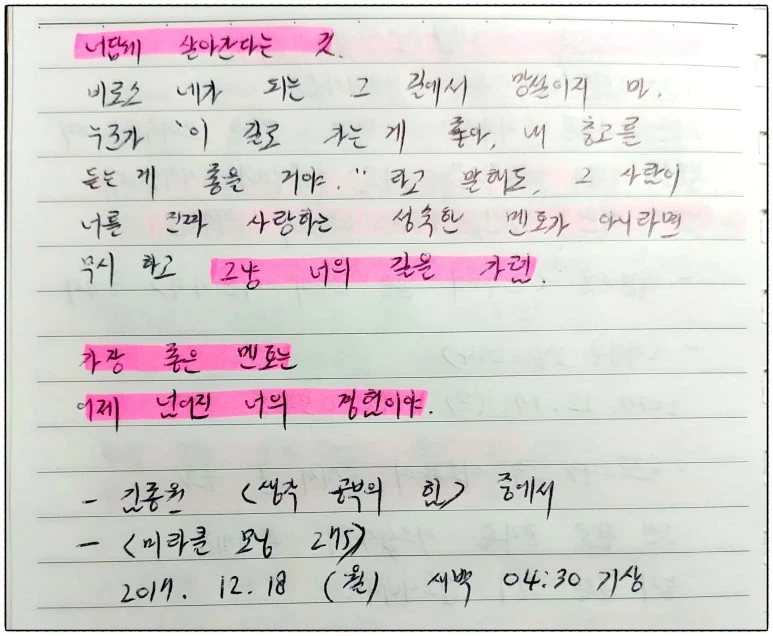 너답게 살아간다는 것.
비로소 네가 되는 그 길에서 망설이지 마.
누군가 "이 길로 가는 게 좋아, 내 충고를
듣는 게 좋을 거야." 라고 말해도, 그 사람이
너를 진짜 사랑하는 성숙한 멘토가 아니라면
무시 하고 그냥 너의 길을 가렴.
가장 좋은 멘토는
어제 넘어진 너의 경험이야.
- 김종원 <생각 공부의 힘> 중에서
- <미라클 모닝 275>
2017. 12. 18 (월) 새벽 04:30 기상